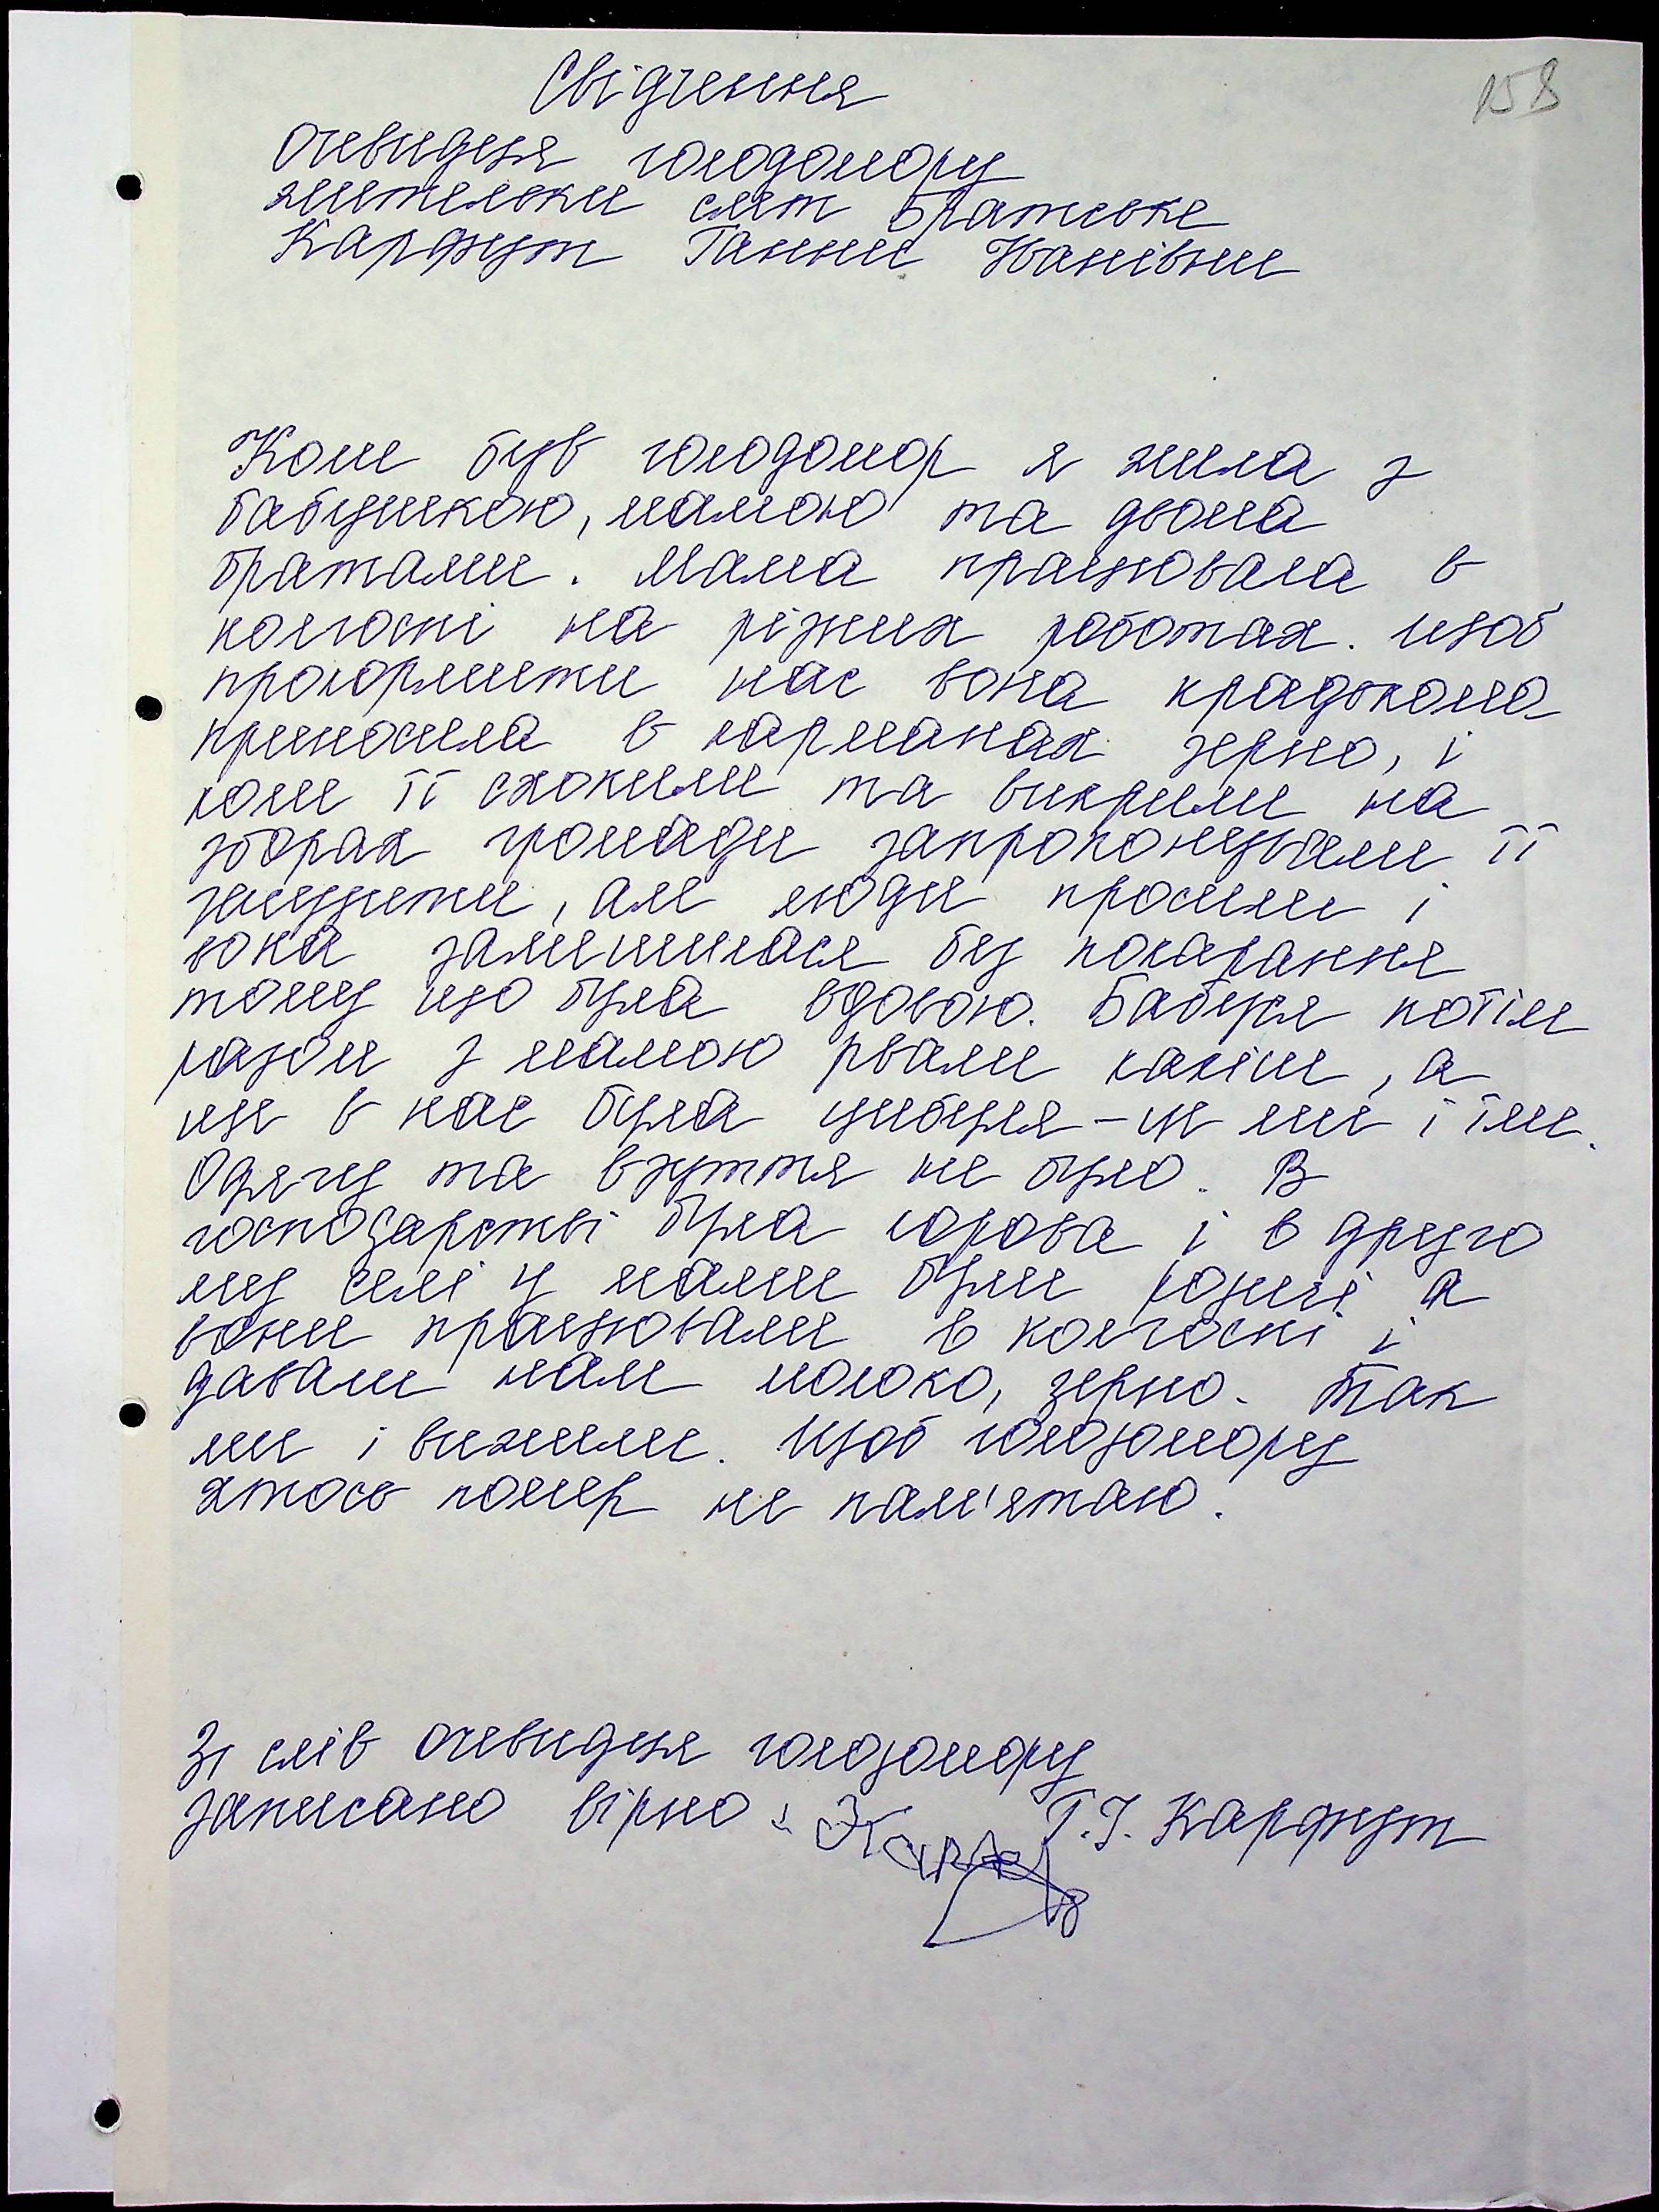 158
Свідчення
очевидця голодомору
жительки смт Братське
Карфут Ганни Іванівни
Коли був голодомор я жила з
бабушкою, мамою та двома
братами. Мама працювала в
колгоспі на різних роботах. щоб
прокормити нас вона крадькома
приносила в карманах зерно, і
коли її схопили та викрили на
зборах громади запропонували її
засудити, але люди просили і
вона залишилася без покарання
тому що була вдовою. Бабуся потім
разом з мамою рвали калачи, а
ще в нас була цибуля - це ми і їли.
Одягу та взуття не було. В
господарстві була корова і в друго
му селі у мами були родичі а
вони працювали в колгоспі і
давали нам молоко, зерно. Так
ми і вижили. Щоб голодомору
хтось помер не пам'ятаю.
Зі слів очевидця голодомору
записано вірно: Г.І. Карфут